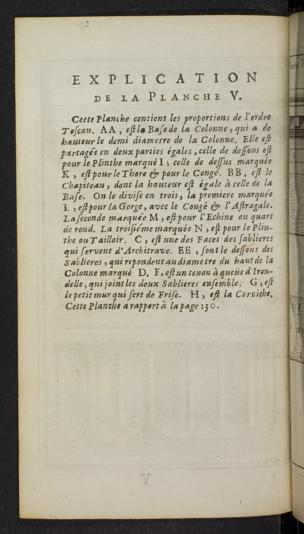 EXPLICATION
DE LA PLANCHE V.
Cette Planche contient les proportions de l'ordre
Toscan. AA, est la Base de la Colonne, qui a de
hauteur le demi diametre de la Colonne. Elle est
partagée en deux parties égales, celle de dessous est
pour le Plinthe marqué I; celle de dessus marquée
K, est pour le Thore & pour le Congé. BB, est le
Chapiteau, dont la hauteur est égale à celle de la
Base. On le divise en trois, la premiere marquée
L, est pour la Gorge, avec le Congé & l'Astragale.
La seconde marquée M, est pour l'Echine ou quart
de rond. La troisiéme marquée N, est pour le Plin-
the ou Tailloir. C, est une des Faces des sablieres
qui servent d'Architrave. EE, sont le dessous des
Sablieres, qui repondent au diametre du haut de la
Colonne marqué D. F, est un tenon à queüe d'Iron-
delle, qui joint les deux Sablieres ensemble. G, est
le petit mur qui sert de Frise. H, est la Corniche.
Cette Planche a rapport à la page 130.